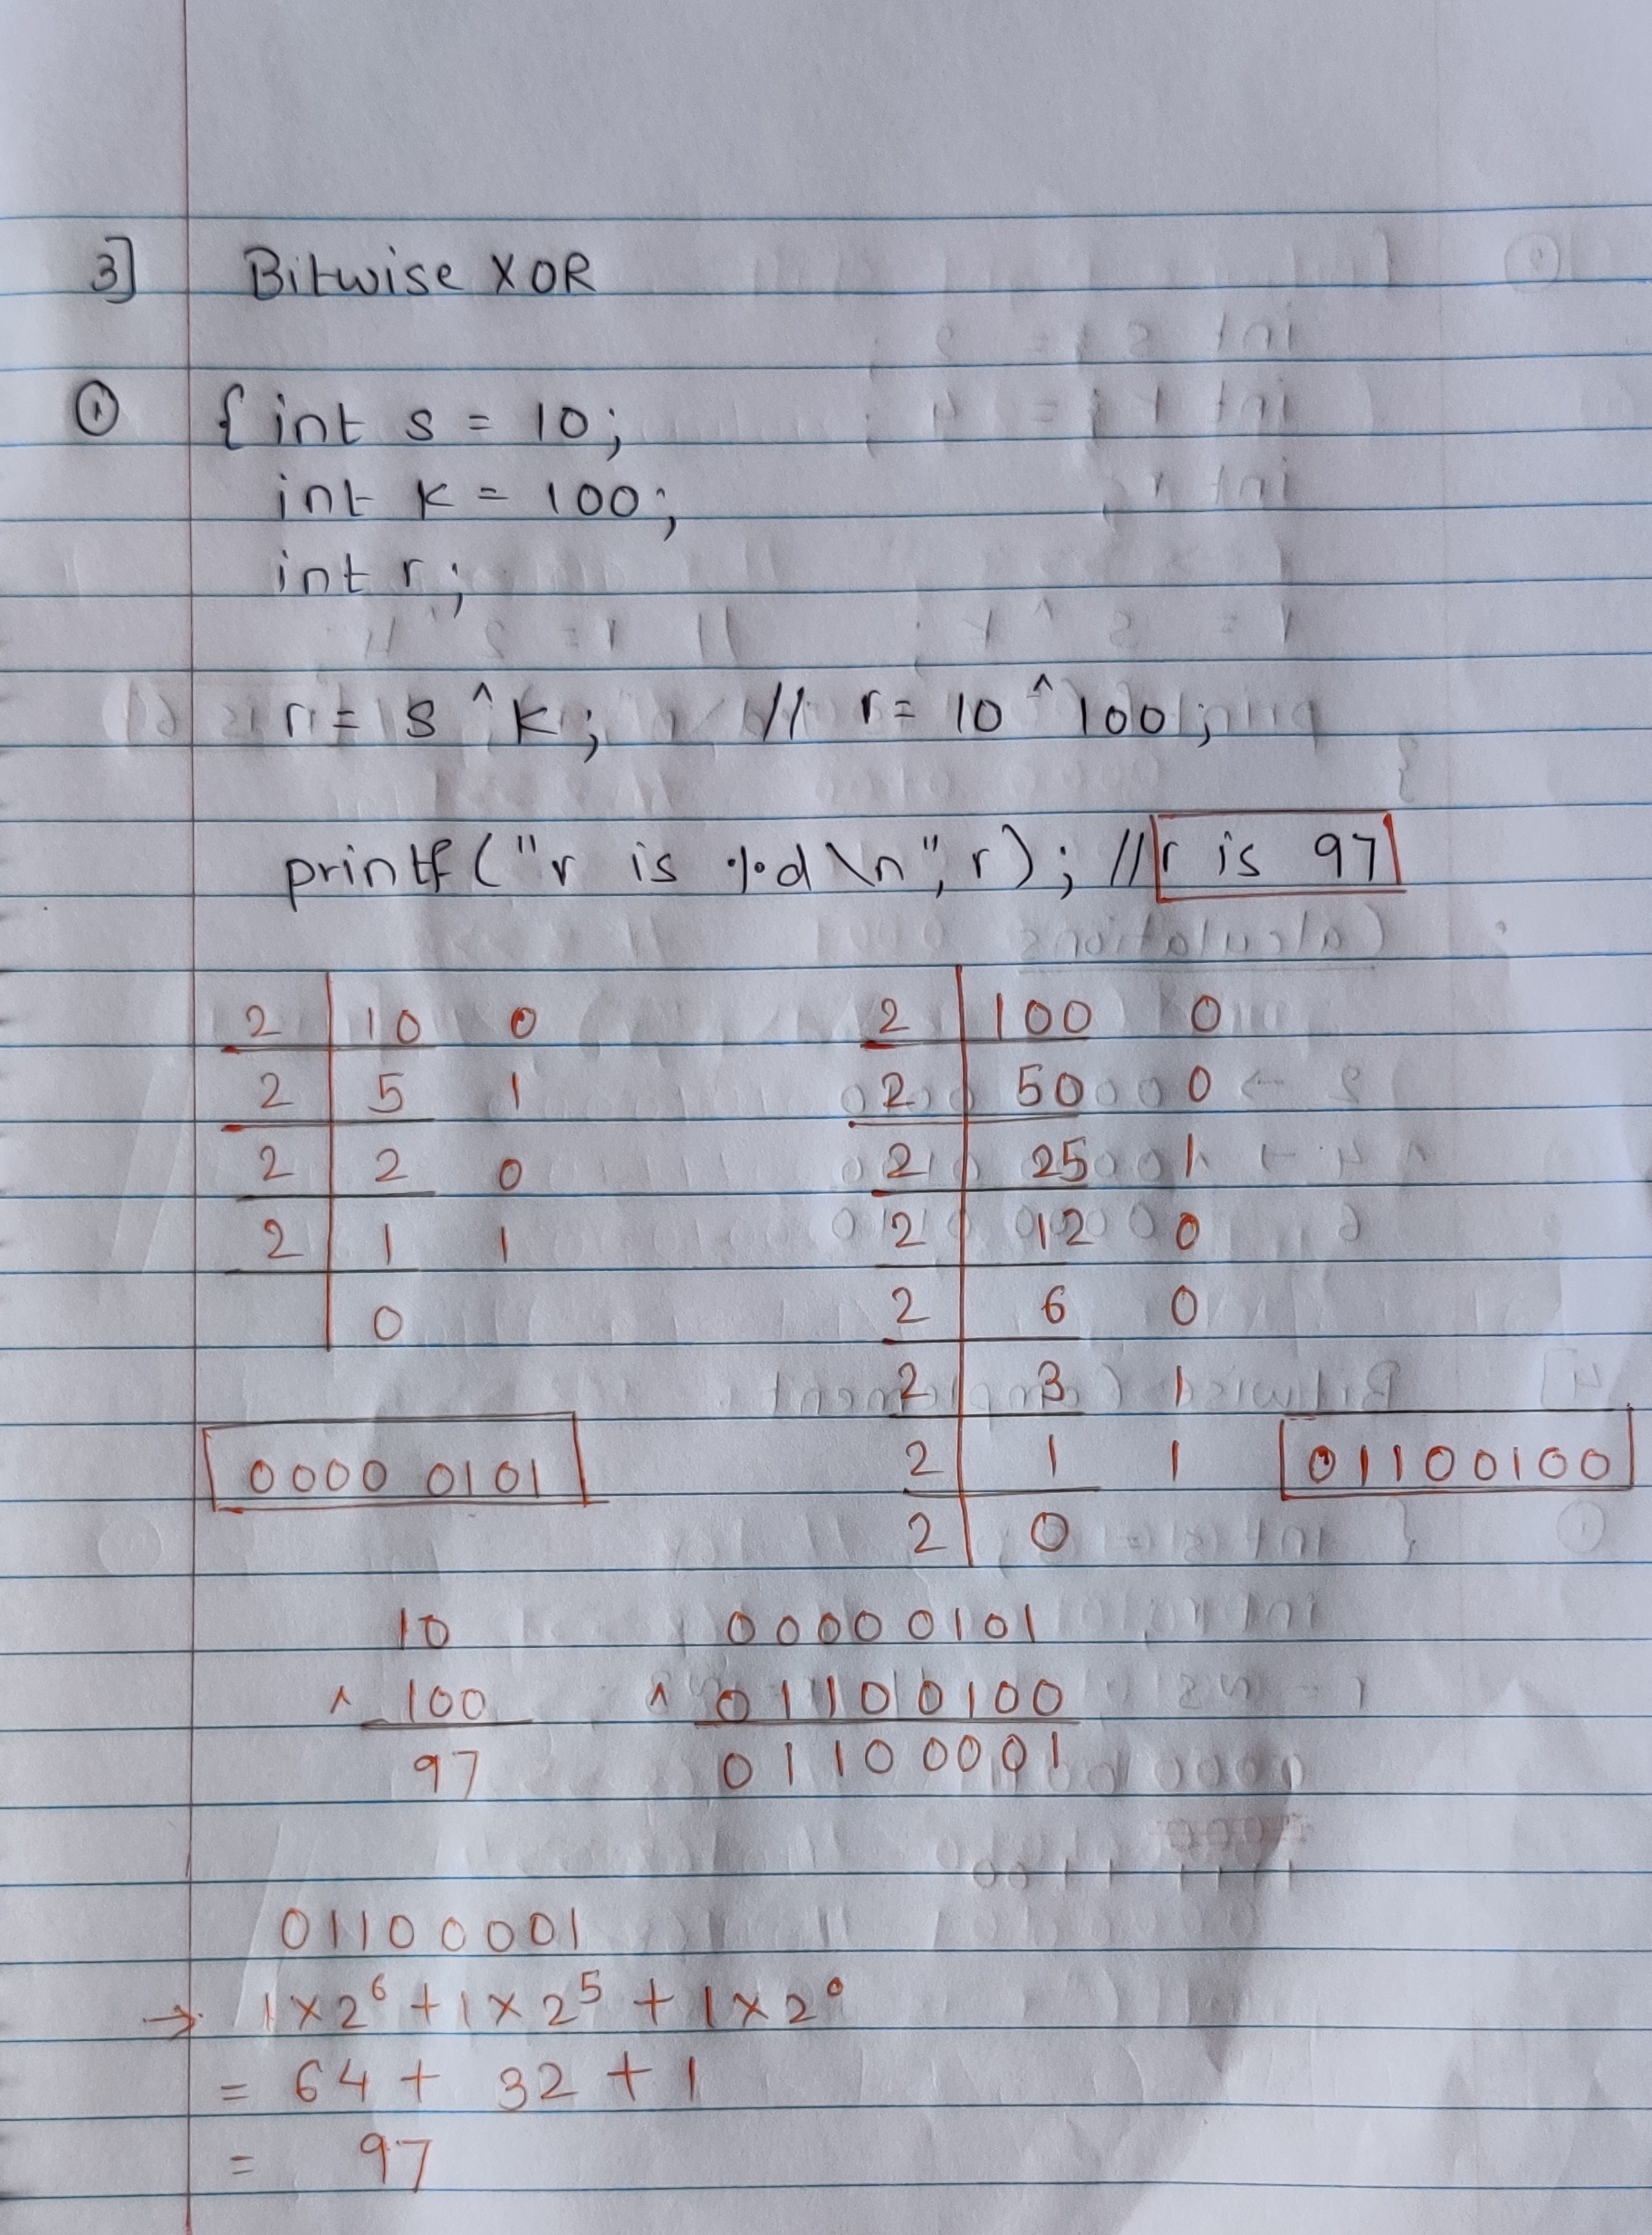 3] Bitwise XOR
① { int s = 10;
int k = 100;
int r;
r = s ^ k; // r = 10 ^ 100;
printf("r is %d \n", r); // r is 97
2 10 0
2 5 1
2 2 0
2 1 1
0
0000 0101
2 100 0
2 50 0
2 25 1
2 12 0
2 6 0
2 3 1
2 1 1
2 0
01100100
10
^ 100
97
00000101
^ 01100100
01100001
01100001
→ 1 × 2⁶ + 1 × 2⁵ + 1 × 2⁰
= 64 + 32 + 1
= 97